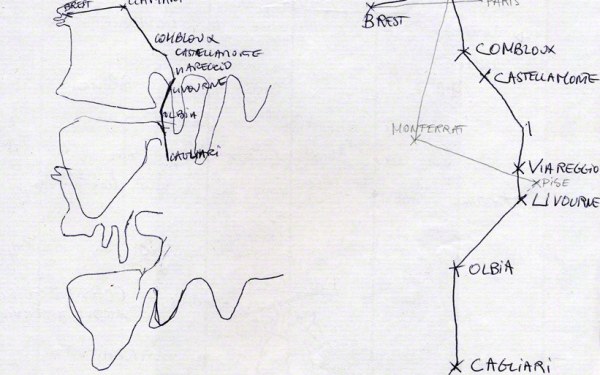 BREST
COMBLOUX
CASTELLAMONTE
VIAREGGIO
LIVOURNE
OLBIA
CAGLIARI
PARIS
BREST
COMBLOUX
CASTELLAMONTE
MONTERRAT
VIAREGGIO
PISE
LIVOURNE
OLBIA
CAGLIARI